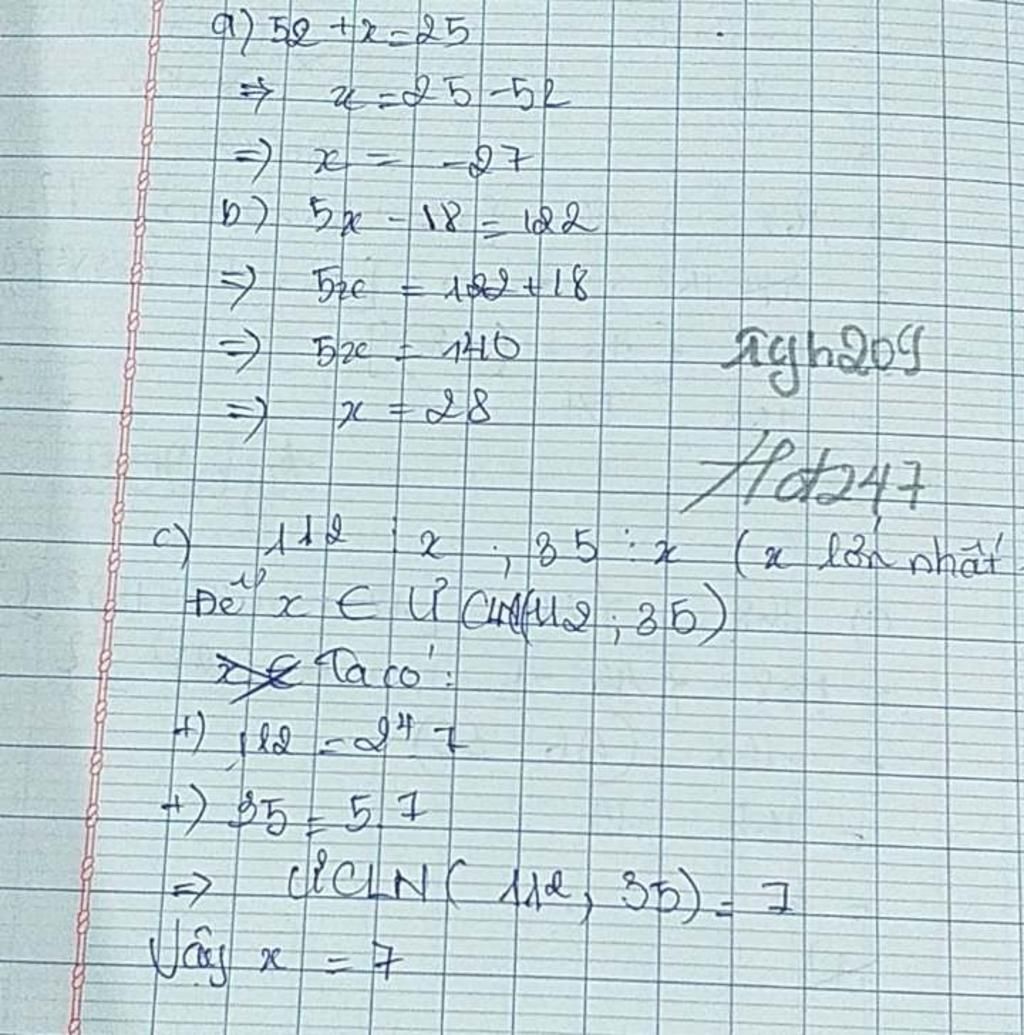 a) 52 + x = 25
=> x = 25 - 52
=> x = -27
b) 5x - 18 = 122
=> 5x = 122 + 18
=> 5x = 140
=> x = 28
c) 112 ⋮ x ; 35 ⋮ x (x lớn nhất
Để x ∈ ƯCLN(112 ; 35)
Ta có :
+) 112 = 2⁴ 7
+) 35 = 5.7
=> ƯCLN( 112, 35) = 7
Vậy x = 7